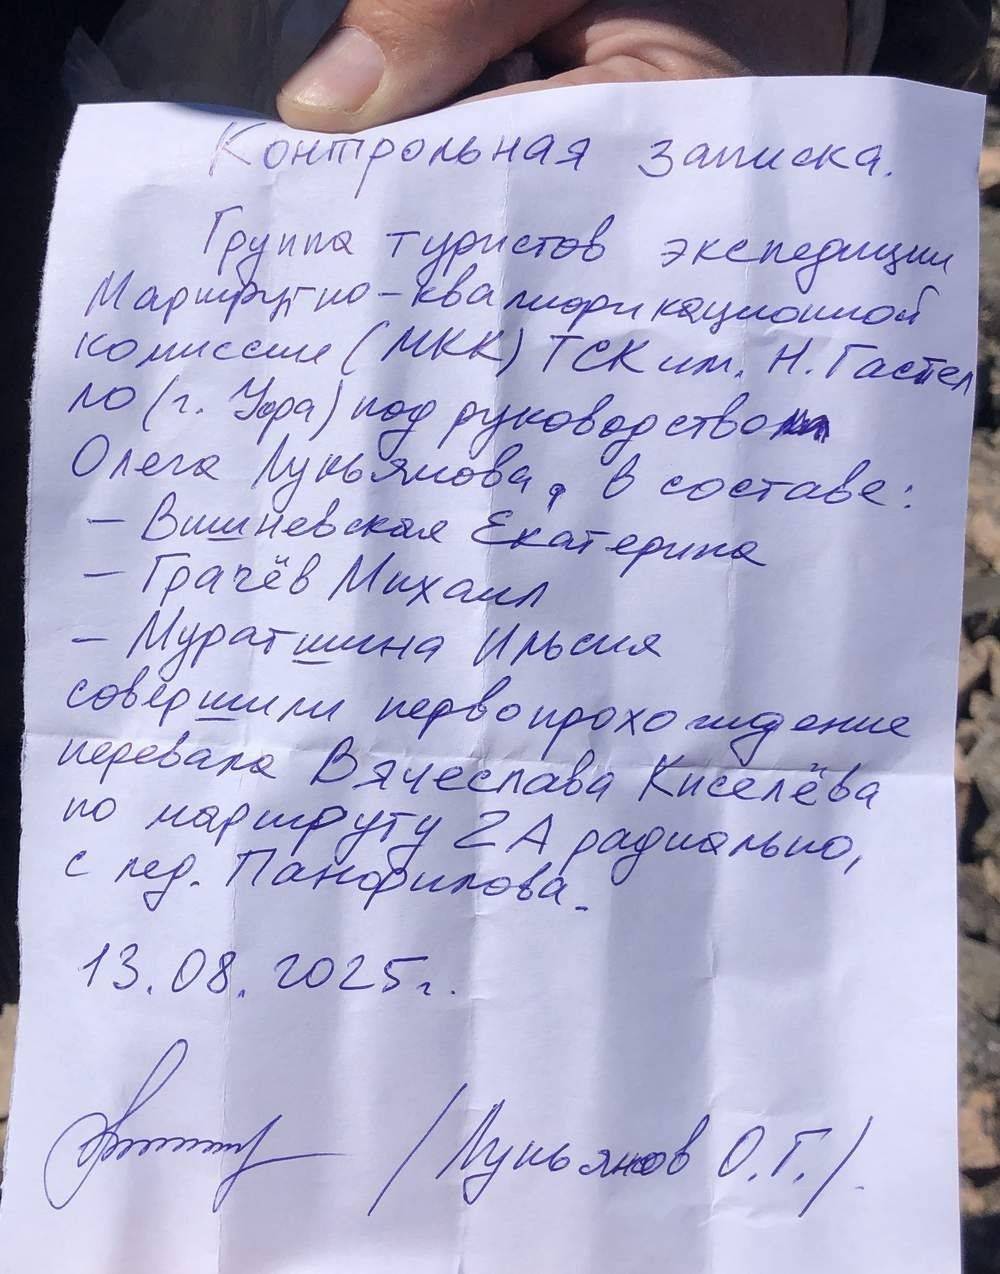 Контрольная записка.
Группа туристов экспедиции
Маршрутно-квалификационной
комиссии (МКК) ТСК им. Н. Гастел
ло (г. Уфа) под руководством
Олега Лукьянова, в составе:
- Вишневская Екатерина
- Грачёв Михаил
- Муратшина Ильсия
совершили первопрохождение
перевала Вячеслава Киселёва
по маршруту 2А радиально,
с лед. Панфилова.
13.08.2025г.
/Лукьянов О.Г./.